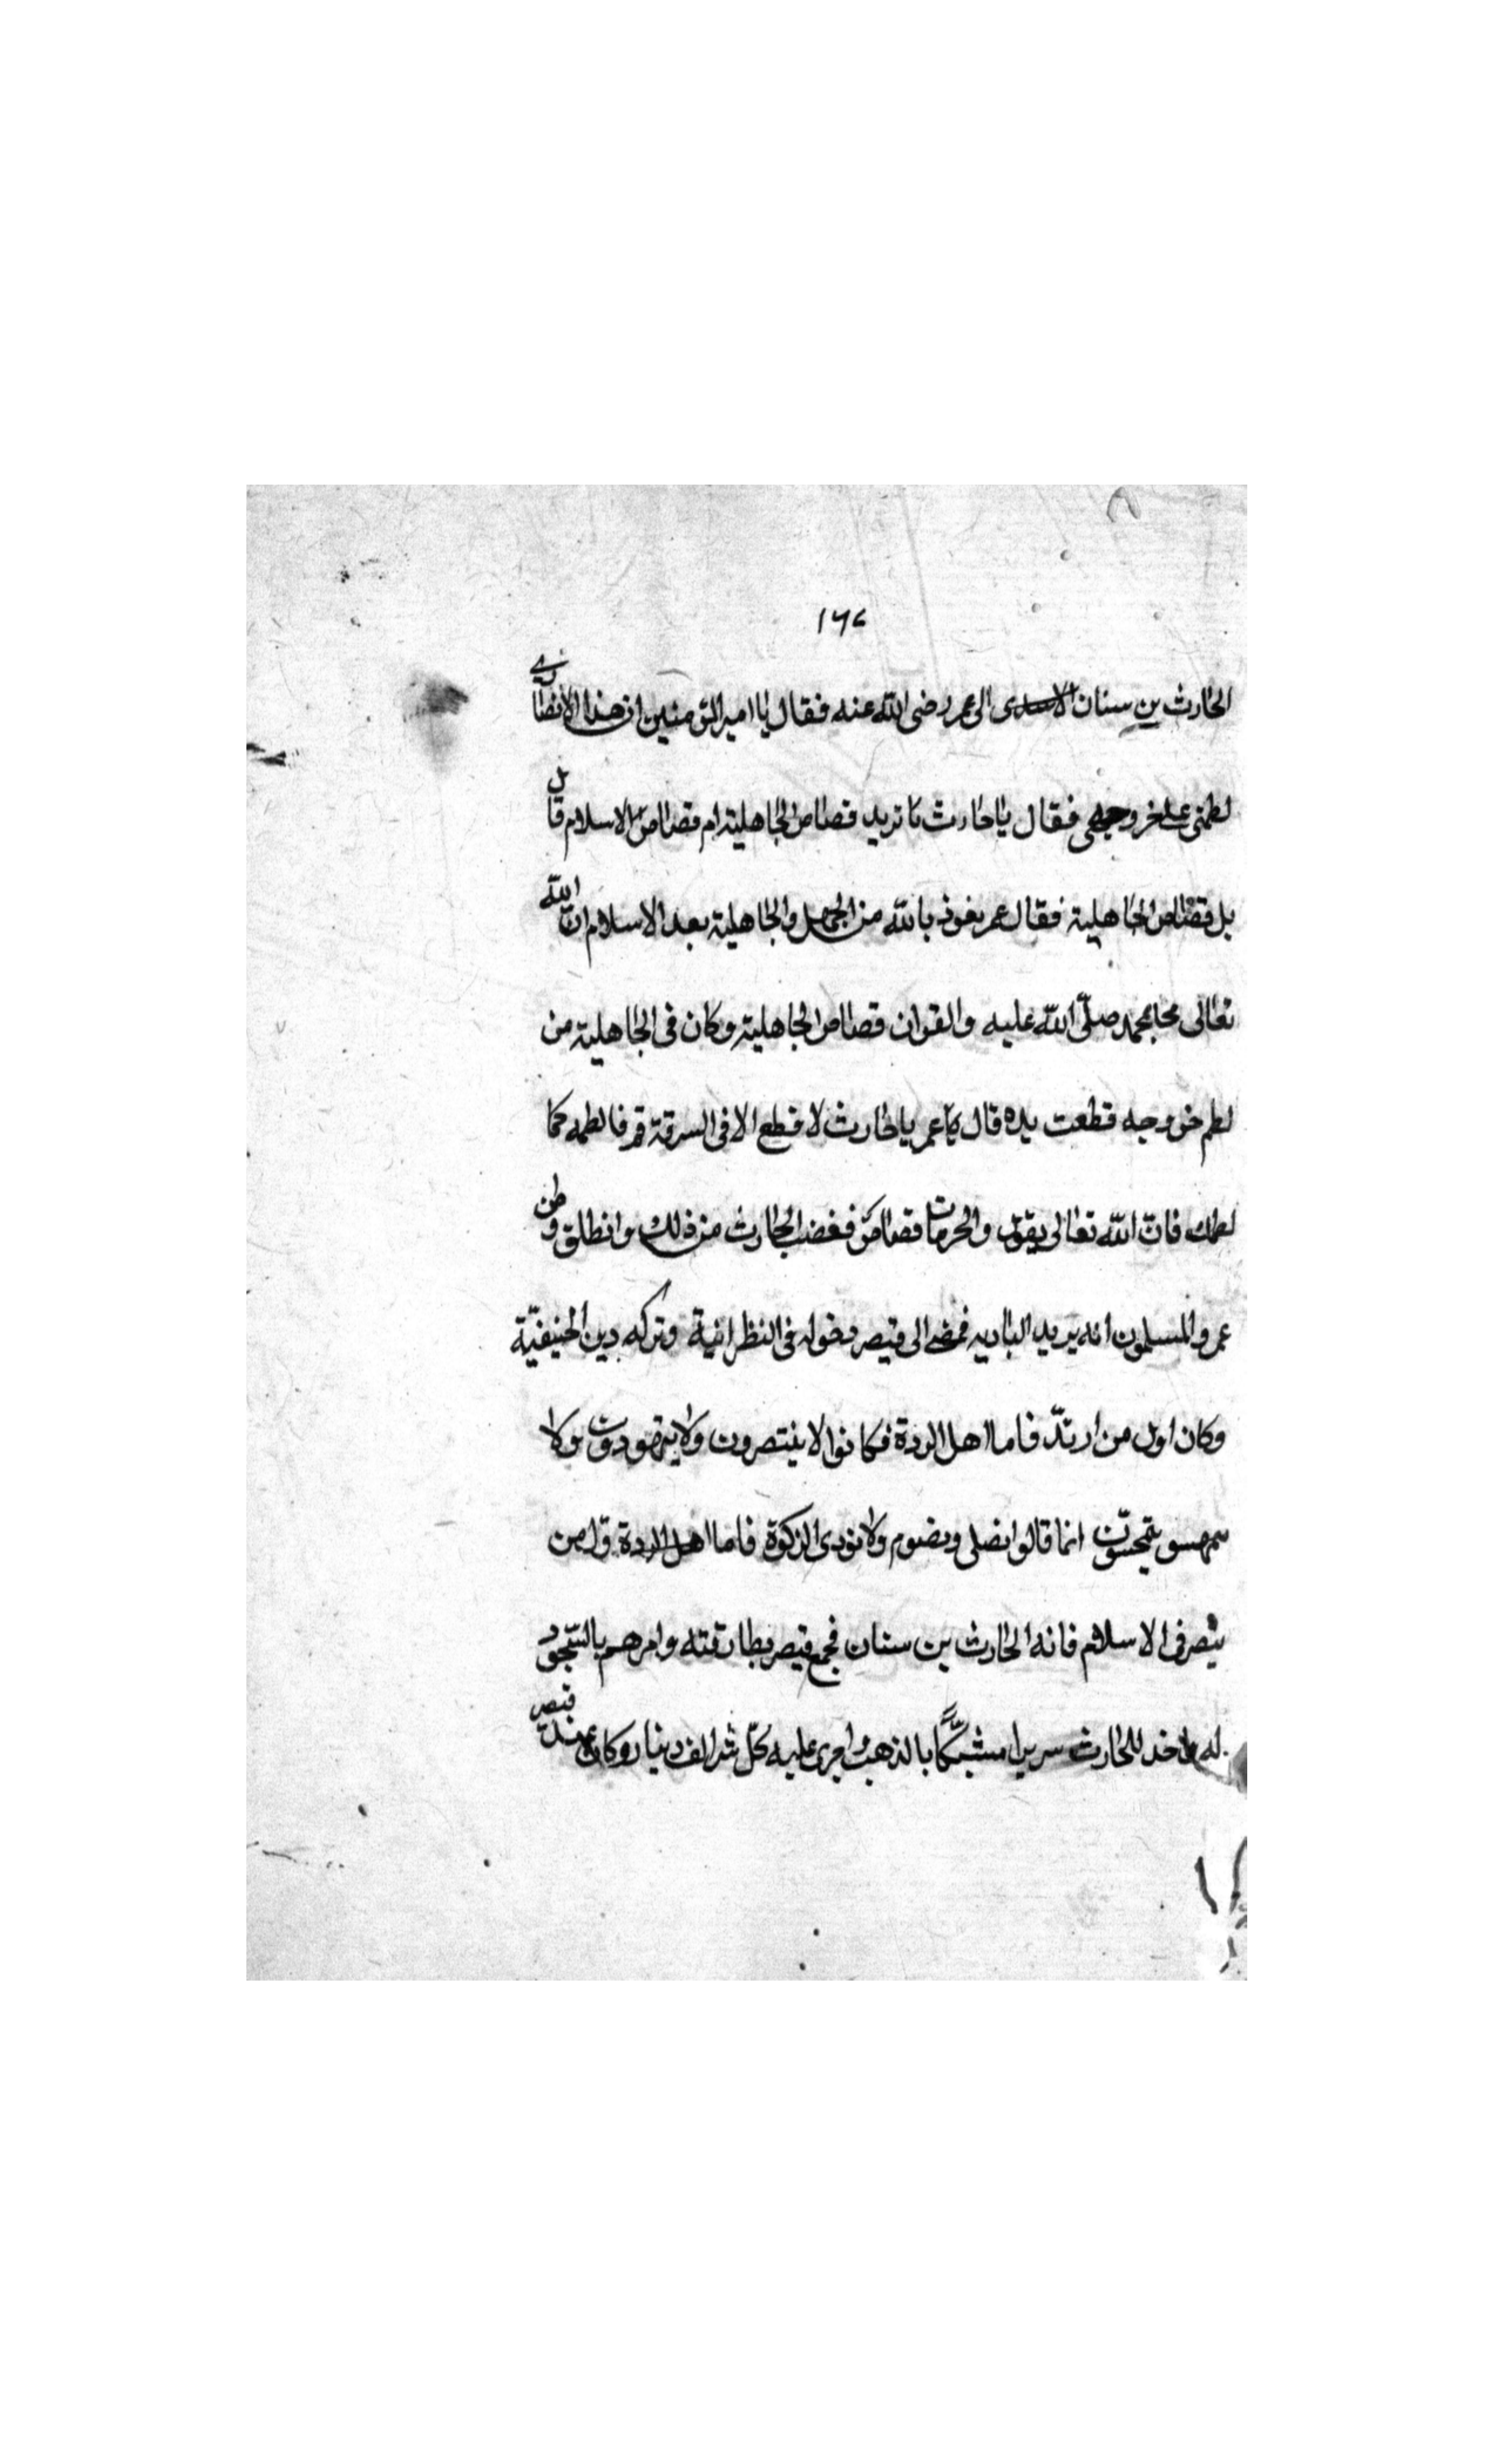 ١٦٧
الحارث بن سنان الاسدى الى عمر رضى الله عنه فقال يا امير المؤمنين ان هذا الأنصاري
لطمنى على حر وجهى فقال يا حارث ما تريد قصاص الجاهلية ام قصاص الاسلام قال
بل قصاص الجاهلية فقال عمر نعوذ بالله من الجهل والجاهلية بعد الاسلام ان الله
تعالى محا بمحمد صلّى الله عليه والقران قصاص الجاهلية وكان فى الجاهلية من
لطم حر وجهه قطعت يده قال عمر يا حارث لا قطع الا فى السرقة قم فالطمه كما
لطمك فانّ الله تعالى يقول والحرمات قصاص فغضب الحارث من ذلك وانطلق وظن
عمر والمسلمون انه يريد البادية فمضى الى قيصر دخوله فى النصرانية وتركه دين الحنيفيّة
وكان اول من ارتدّ فاما اهل الردة فكانوا لا ينتصرون ولا يتهودون ولا
يتمجسون انما قالوا نصلى ونصوم ولا نودى الزكوة فاما اهل الردة
فى الاسلام فانه الحارث بن سنان فجمع قيصر بطارقته وامرهم بالسّجود
له للحارث سريرا مشبّكًا بالذهب واجرى عليه كلّ الف دينار وكان عند قيصر